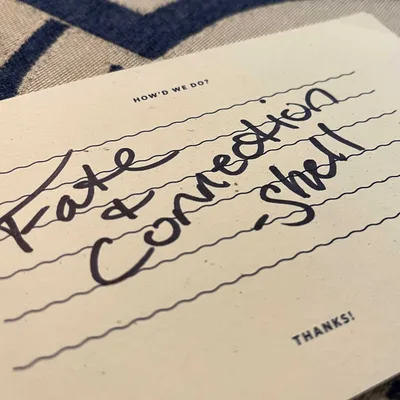 HOW'D WE DO?
Fate
+
Connection
-Shell
THANKS!